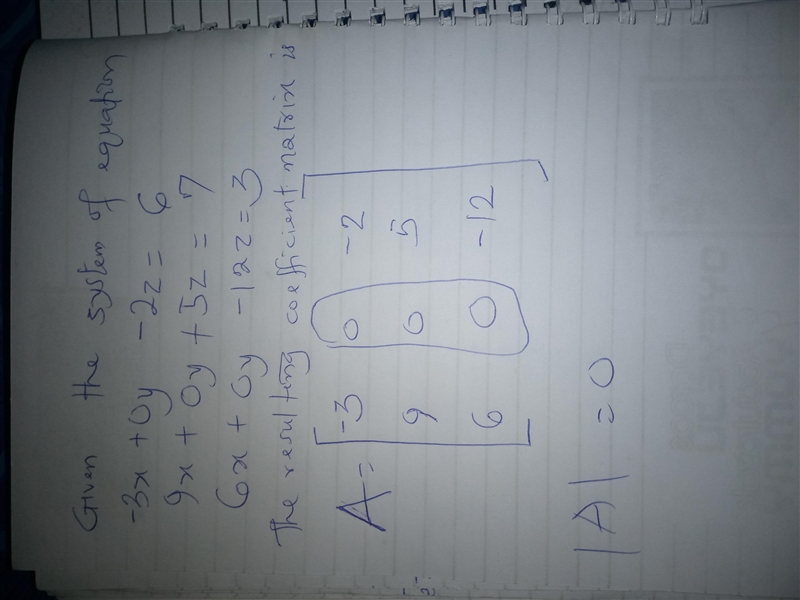 Given the system of equation
-3x + 0y -2z = 6
9x + 0y + 5z = 7
6x + 0y -12z = 3
The resulting coefficient matrix is
A = [ -3 0 -2
9 0 5
6 0 -12 ]
|A| = 0